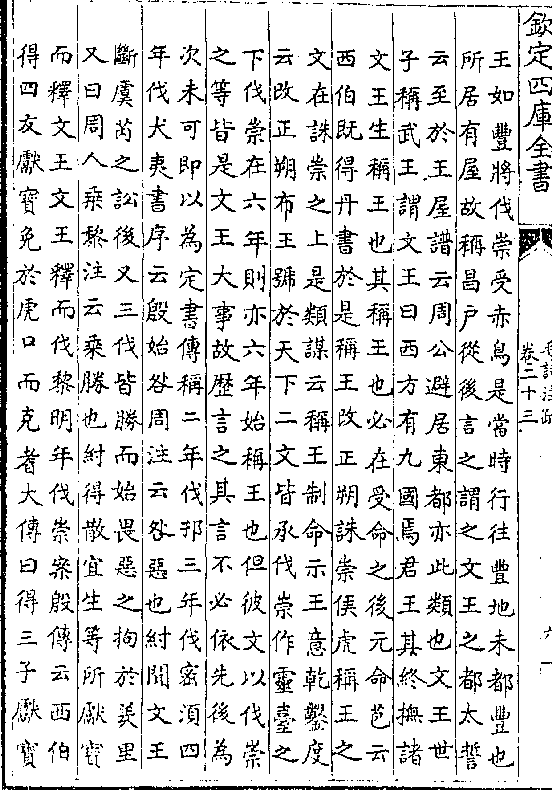 欽定四庫全書
卷二十三
王如豐將伐崇受赤鳥是當時行往豐地未都豐也
所居有屋故稱昌戸從後言之謂之文王之都太誓
云至於王屋譜云周公避居東都亦此類也文王世
子稱武王謂文王曰西方有九國焉君王其終撫諸
文王生稱王也其稱王也必在受命之後元命苞云
西伯既得丹書於是稱王改正朔誅崇侯虎稱王之
文在誅崇之上是類謀云稱王制命示王意乾鑿度
云改正朔布王號於天下二文皆承伐崇作靈臺之
下伐崇在六年則亦六年始稱王也但彼文以伐崇
之等皆是文王大事故歴言之其言不必依先後為
次未可即以為定書傳稱二年伐邘三年伐密須四
年伐犬夷書序云殷始咎周注云咎惡也紂聞文王
斷虞芮之訟後又三伐皆勝而始畏惡之拘於羑里
又曰周人乘黎注云乘勝也紂得散宜生等所獻寶
而釋文王文王釋而伐黎明年伐崇案殷傳云西伯
得四友獻寶免於虎口而克耆大傳曰得三子獻寶